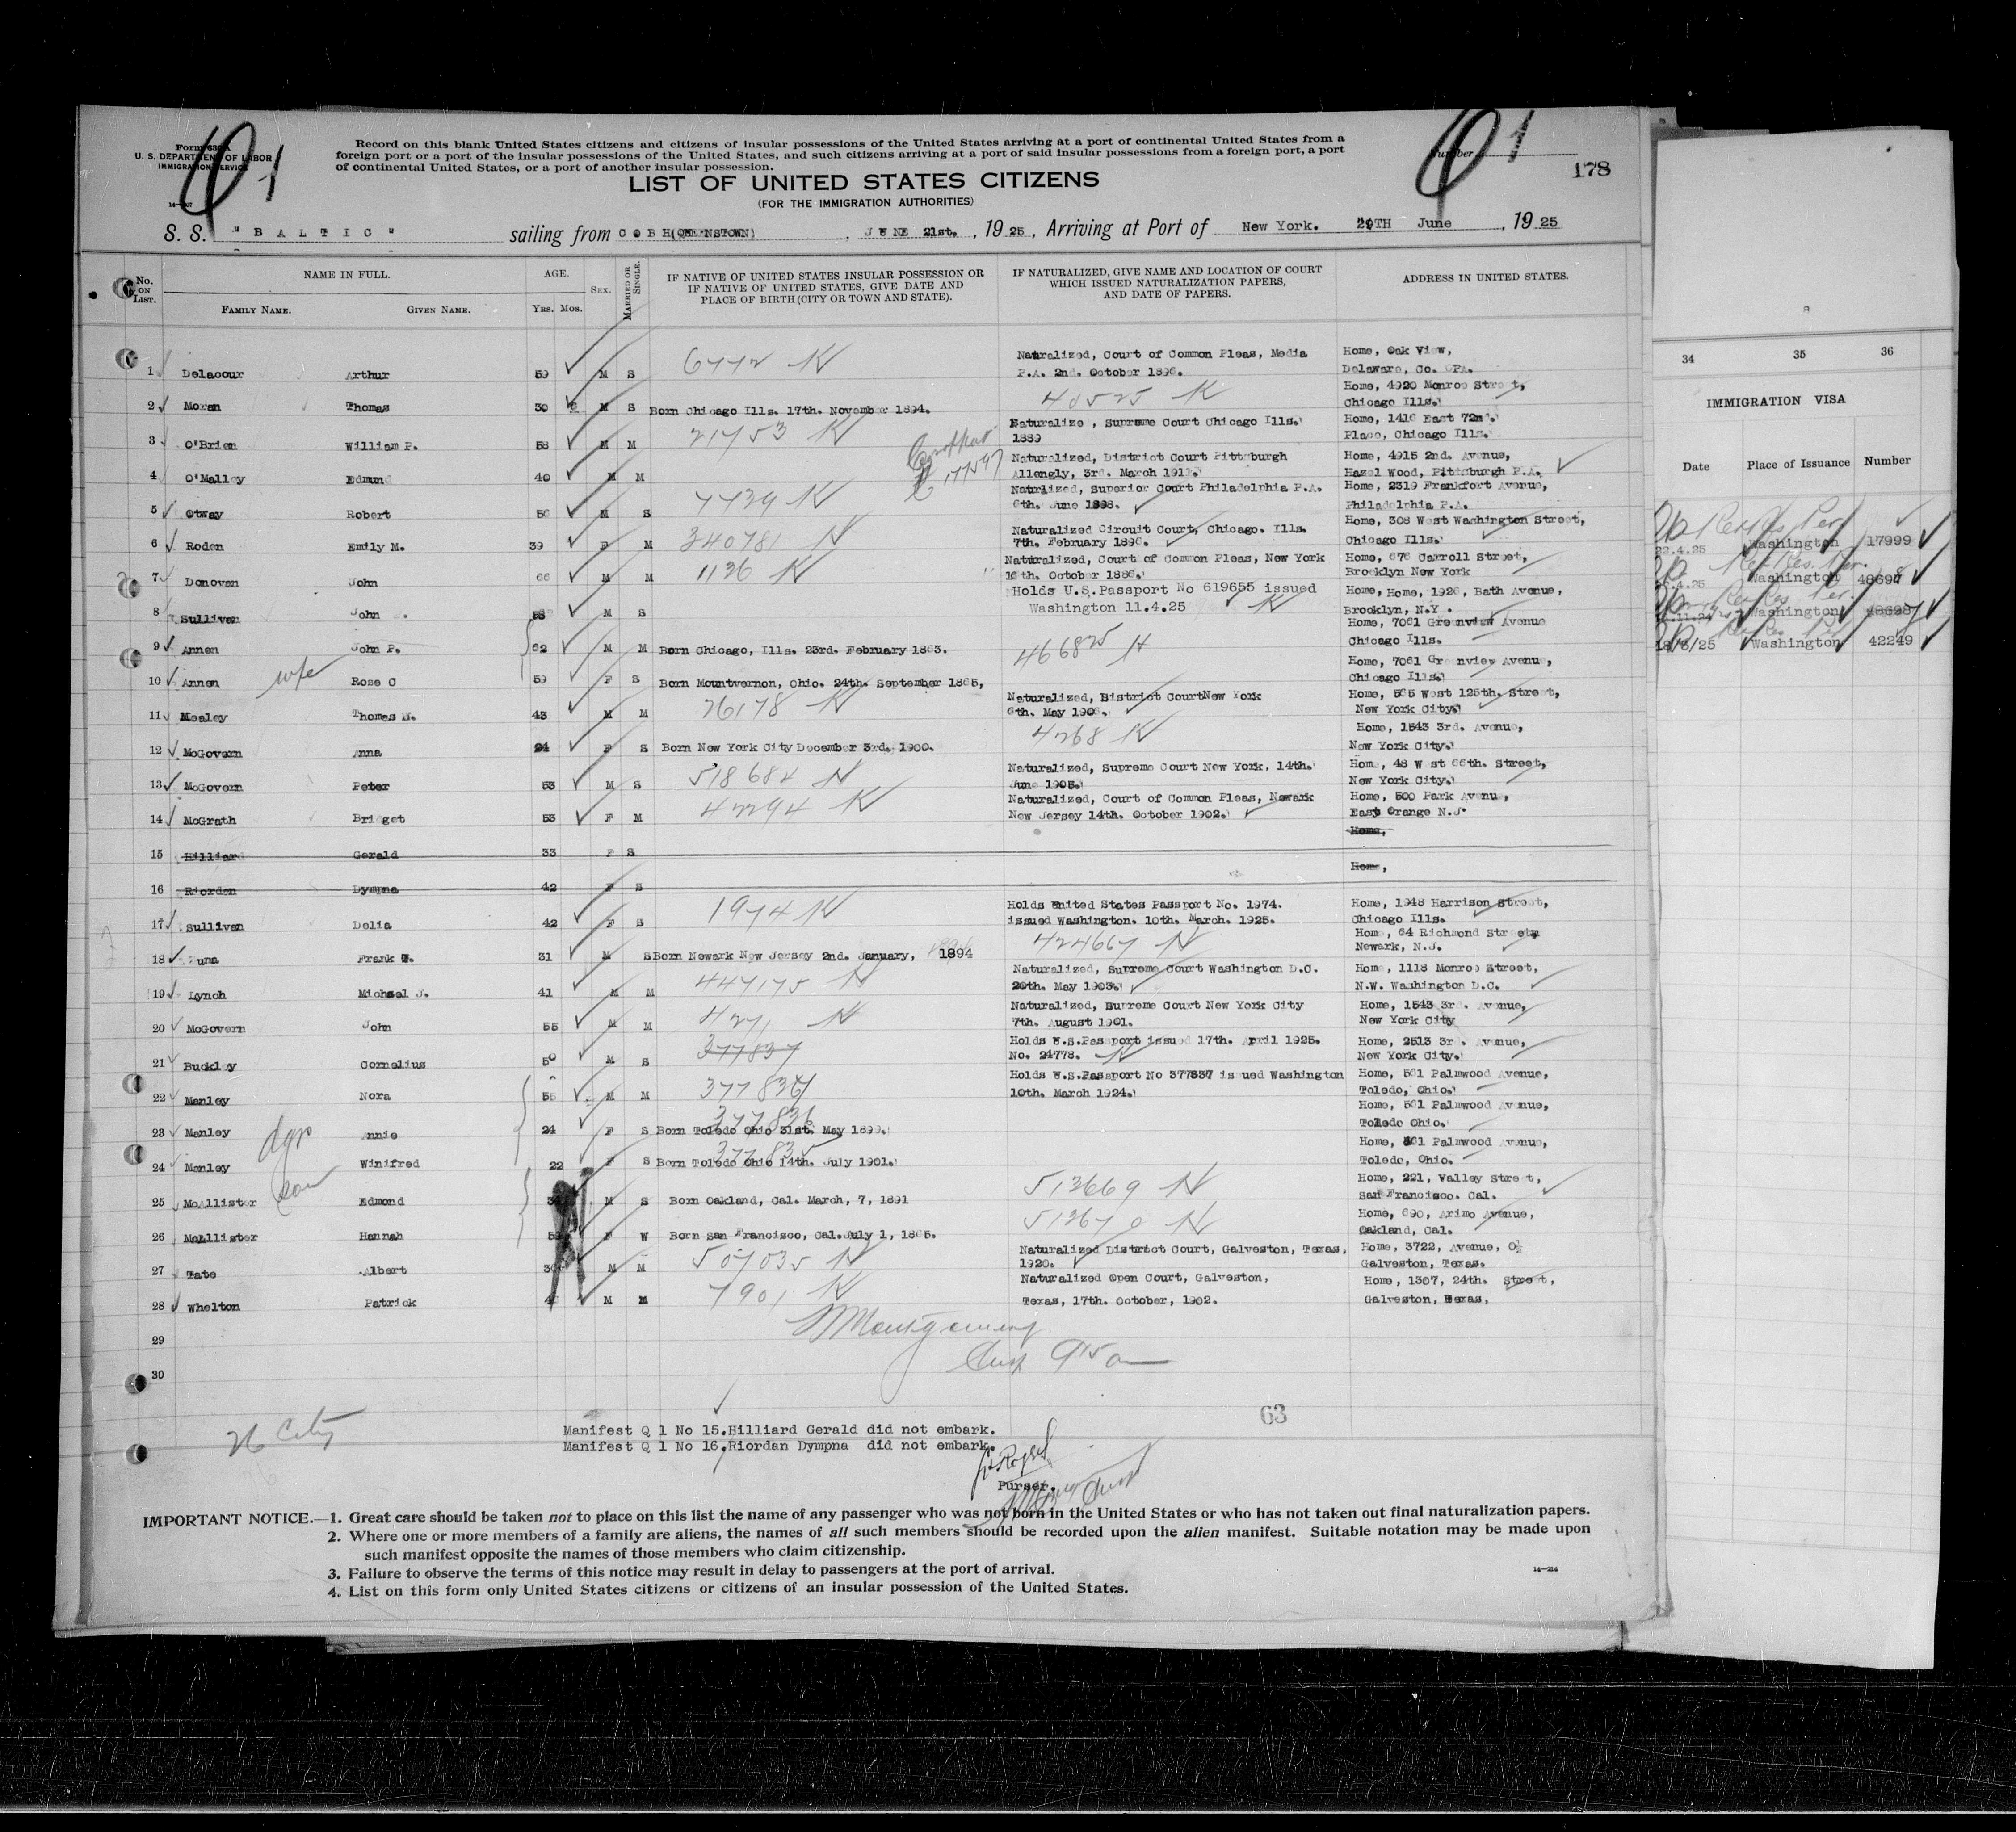 Form 630 A
U. S. DEPARTMENT OF LABOR
IMMIGRATION SERVICE
Record on this blank United States citizens and citizens of insular possessions of the United States arriving at a port of continental United States from a
foreign port or a port of the insular possessions of the United States, and such citizens arriving at a port of said insular possessions from a foreign port, a port
of continental United States, or a port of another insular possession.
Number
178
LIST OF UNITED STATES CITIZENS
(FOR THE IMMIGRATION AUTHORITIES)
S. S. "BALTIC" sailing from COBH(QUEENSTOWN), JUNE 21st., 1925, Arriving at Port of New York. 29TH June, 1925
No. ON LIST. NAME IN FULL. AGE. SEX. MARRIED OR SINGLE. IF NATIVE OF UNITED STATES INSULAR POSSESSION OR IF NATIVE OF UNITED STATES, GIVE DATE AND PLACE OF BIRTH (CITY OR TOWN AND STATE). IF NATURALIZED, GIVE NAME AND LOCATION OF COURT WHICH ISSUED NATURALIZATION PAPERS, AND DATE OF PAPERS. ADDRESS IN UNITED STATES.
FAMILY NAME. GIVEN NAME. YRS. MOS.
1 Delacour Arthur 59 M S 6772 K Naturalized, Court of Common Pleas, Media Home, Oak View,
P.A. 2nd. October 1896. Delaware, Co. PA.
2 Moran Thomas 30 M S Born Chicago Ills. 17th. November 1894. 40525 K Home, 4920 Monroe Street,
Chicago Ills.
3 O'Brien William P. 58 M M 21753 K Naturalize , Supreme Court Chicago Ills. Home, 1416 East 72nd.
1889 Place, Chicago Ills.
4 O'Malley Edmund 40 M M Naturalized, District Court Pittsburgh Home, 4915 2nd. Avenue,
Allengly, 3rd. March 1911. Hazel Wood, Pittsburgh P.A.
5 Otway Robert 56 M S 7739 K Naturlized, Superior Court Philadelphia P.A. Home, 2319 Frankfort Avenue,
6th. June 1898. Philadelphia P.A.
6 Roden Emily M. 39 F M 340781 N Naturalized Circuit Court, Chicago. Ills. Home, 308 West Washington Street,
7th. February 1896. Chicago Ills.
7 Donovan John 66 M M 1136 K Naturalized, Court of Common Pleas, New York Home, 676 Carroll Street,
16th. October 1886. Brooklyn New York
8 Sullivan John M S Holds U.S.Passport No 619655 issued Home, Home, 1926, Bath Avenue,
Washington 11.4.25 K Brooklyn, N.Y.
9 Annen John P. 62 M M Born Chicago, Ills. 23rd. February 1863. 466825 N Home, 7061 Greenview Avenue
Chicago Ills.
10 Annen wife Rose C 59 F S Born Mountvernon, Ohio. 24th. September 1865, Home, 7061 Greenview Avenue,
Chicago Ills.
11 Mealey Thomas 43 M M 26178 K Naturalized, District CourtNew York Home, 565 West 125th. Street,
6th. May 1906. New York City.
12 McGovern Anna 24 F S Born New York City December 3rd. 1900. 4268 K Home, 1543 3rd. Avenue,
New York City.
13 McGovern Peter 53 M S 518684 N Naturalized, Supreme Court New York, 14th. Home, 48 West 66th. Street,
June 1905. New York City.
14 McGrath Bridget 53 F M 42294 K Naturalized, Court of Common Pleas, Newark Home, 500 Park Avenu,
New Jersey 14th. October 1902. East Orange N.J.
15 Hilliard Gerald 33 F S Home,
16 Riordan Dympna 42 F S Home,
17 Sullivan Delia 42 F S 1974 K Holds United States Passport No. 1974. Home, 1948 Harrison Street,
issued Washington. 10th. March. 1925. Chicago Ills.
18 Frank 31 M S Born Newark New Jersey 2nd. January, 1894 424667 N Home, 64 Richmond Street,
Newark, N.J.
19 Lynch Michael J. 41 M M 447175 N Naturalized, Supreme Court Washington D.C. Home, 1118 Monroe Street,
20th. May 1903. N.W. Washington D.C.
20 McGovern John 55 M M 4271 K Naturalized, Supreme Court New York City Home, 1543 3rd. Avenue,
7th. August 1901. New York City
21 Buckley Cornelius 50 M S 377837 Holds U.S.Passport issued 17th. April 1925. Home, 2513 3rd. Avenue,
No. 24778. K New York City.
22 Manley Nora 55 M M Holds U.S.Passport No 377837 issued Washington Home, 561 Palmwood Avenue,
10th. March 1924. Toledo, Ohio.
23 Manley Annie 24 F S 377836 Born Toledo Ohio 31st. May 1899. Home, 561 Palmwood Avenue,
Toledo Ohio.
24 Manley Winifred 22 F S 377835 Born Toledo Ohio 14th. July 1901. Home, 561 Palmwood Avenue,
Toledo, Ohio.
25 McAllister son Edmond 34 M S Born Oakland, Cal. March, 7, 1891 513669 N Home, 221, Valley Street,
San Francisco. Cal.
26 McAllister Hannah F W Born San Francisco, Cal.July 1, 1865. 513670 N Home, 690, Arimo Avenue,
Oakland, Cal.
27 Tate Albert M M 507035 N Naturalized District Court, Galveston, Texas, Home, 3722, Avenue, O½
1920. Galveston, Texas.
28 Whelton Patrick M M 7901 K Naturalized Open Court, Galveston, Home, 1307, 24th. Street,
Texas, 17th. October, 1902. Galveston, Texas,
29
30
Montgomery
63
Manifest Q 1 No 15.Hilliard Gerald did not embark.
Manifest Q 1 No 16.Riordan Dympna did not embark.
Purser.
IMPORTANT NOTICE.—1. Great care should be taken not to place on this list the name of any passenger who was not born in the United States or who has not taken out final naturalization papers.
2. Where one or more members of a family are aliens, the names of all such members should be recorded upon the alien manifest. Suitable notation may be made upon
such manifest opposite the names of those members who claim citizenship.
3. Failure to observe the terms of this notice may result in delay to passengers at the port of arrival.
4. List on this form only United States citizens or citizens of an insular possession of the United States.
34 35 36
IMMIGRATION VISA
Date Place of Issuance Number
Washington 17999
Washington 48697
Washington 48698
Washington 42249